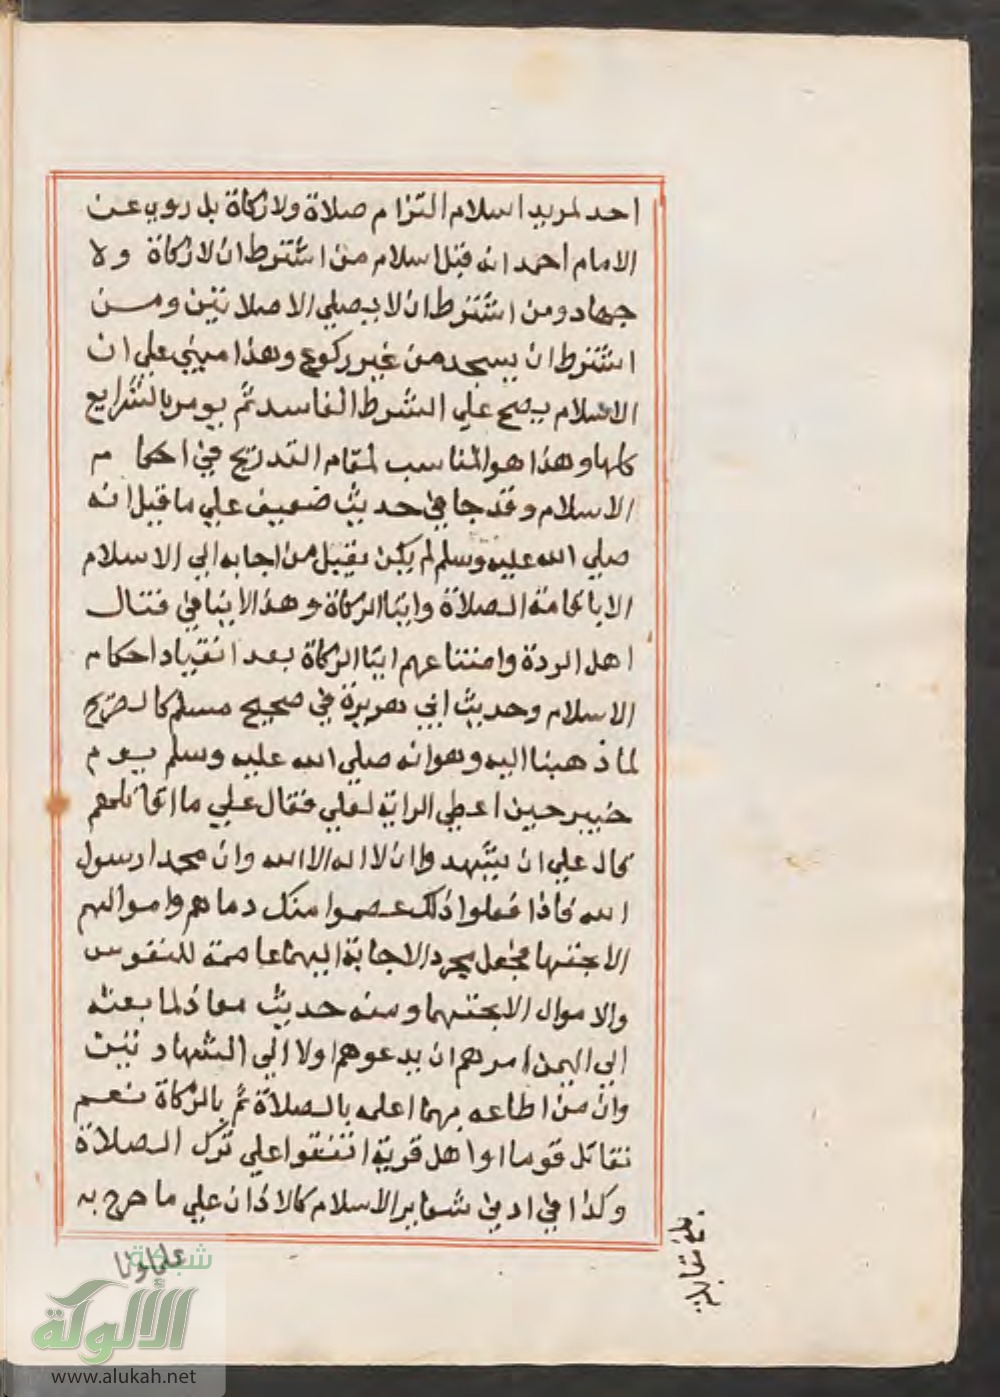 احد لمريد اسلام التزام صلاة ولا زكاة بل روي عن
الامام احمد انه قبل اسلام من اشترط ان لا زكاة ولا
جهاد ومن اشترط ان لا يصلي الا صلاتين ومن
اشترط ان يسجد من غير ركوع وهذا مبني علي ان
الاسلام يصح علي الشرط الفاسد ثم يومر بالشرايع
كلها وهذا هو المناسب لمقام التدريج في احكام
الاسلام وقد جا في حديث ضعيف علي ما قيل انه
صلي الله عليه وسلم لم يكن يقبل من اجابه الي الاسلام
الا باقامة الصلاة وايتا الزكاة وهذا لا ينافي قتال
اهل الردة وامتناعهم ايتا الزكاة بعد انقياد احكام
الاسلام وحديث ابي هريرة في صحيح مسلم كالصريح
لما ذهبنا اليه وهو انه صلي الله عليه وسلم يوم
خيبر حين اعطي الراية لعلي فقال علي ما اقاتلهم
قال علي ان يشهدوا ان لا اله الا الله وان محمدا رسول
الله فاذا فعلوا ذلك عصموا منك دماهم واموالهم
الا بحقها فجعل مجرد الاجابة اليهما عاصمة للنفوس
والاموال الا بحقهما ومنه حديث معاذ لما بعثه
الي اليمن امرهم ان يدعوهم اولا الي الشهادتين
وان من اطاعه بهما اعلمه بالصلاة ثم بالزكاة نعم
نقاتل قوما او اهل قرية اتفقوا علي ترك الصلاة
وكذا في ادني شعاير الاسلام كالاذان علي ما صرح به
علماونا
بلغ مقابلة
شبكة
الألولة
www.alukah.net